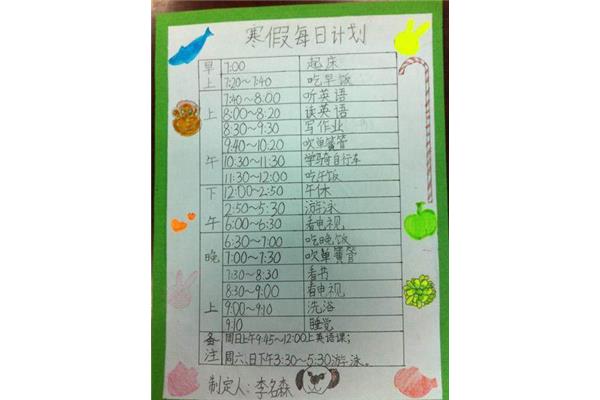 寒假每日计划
早上 7:00 起床
7:20~7:40 吃早饭
上午 7:40~8:00 听英语
8:00~8:20 读英语
8:30~9:30 写作业
9:40~10:20 吹单簧管
10:30~11:30 学骑自行车
11:30~12:00 吃午饭
下午 12:00~2:50 午休
2:50~5:30 游泳
6:00~6:30 看电视
晚上 6:30~7:00 吃晚饭
7:00~7:30 吹单簧管
7:30~8:30 看书
8:30~9:00 看电视
9:00~9:10 洗浴
9:10 睡觉
备注 周日上午9:45~12:00上英语课;
周六、日下午3:30~5:30游泳。
制定人:李名森